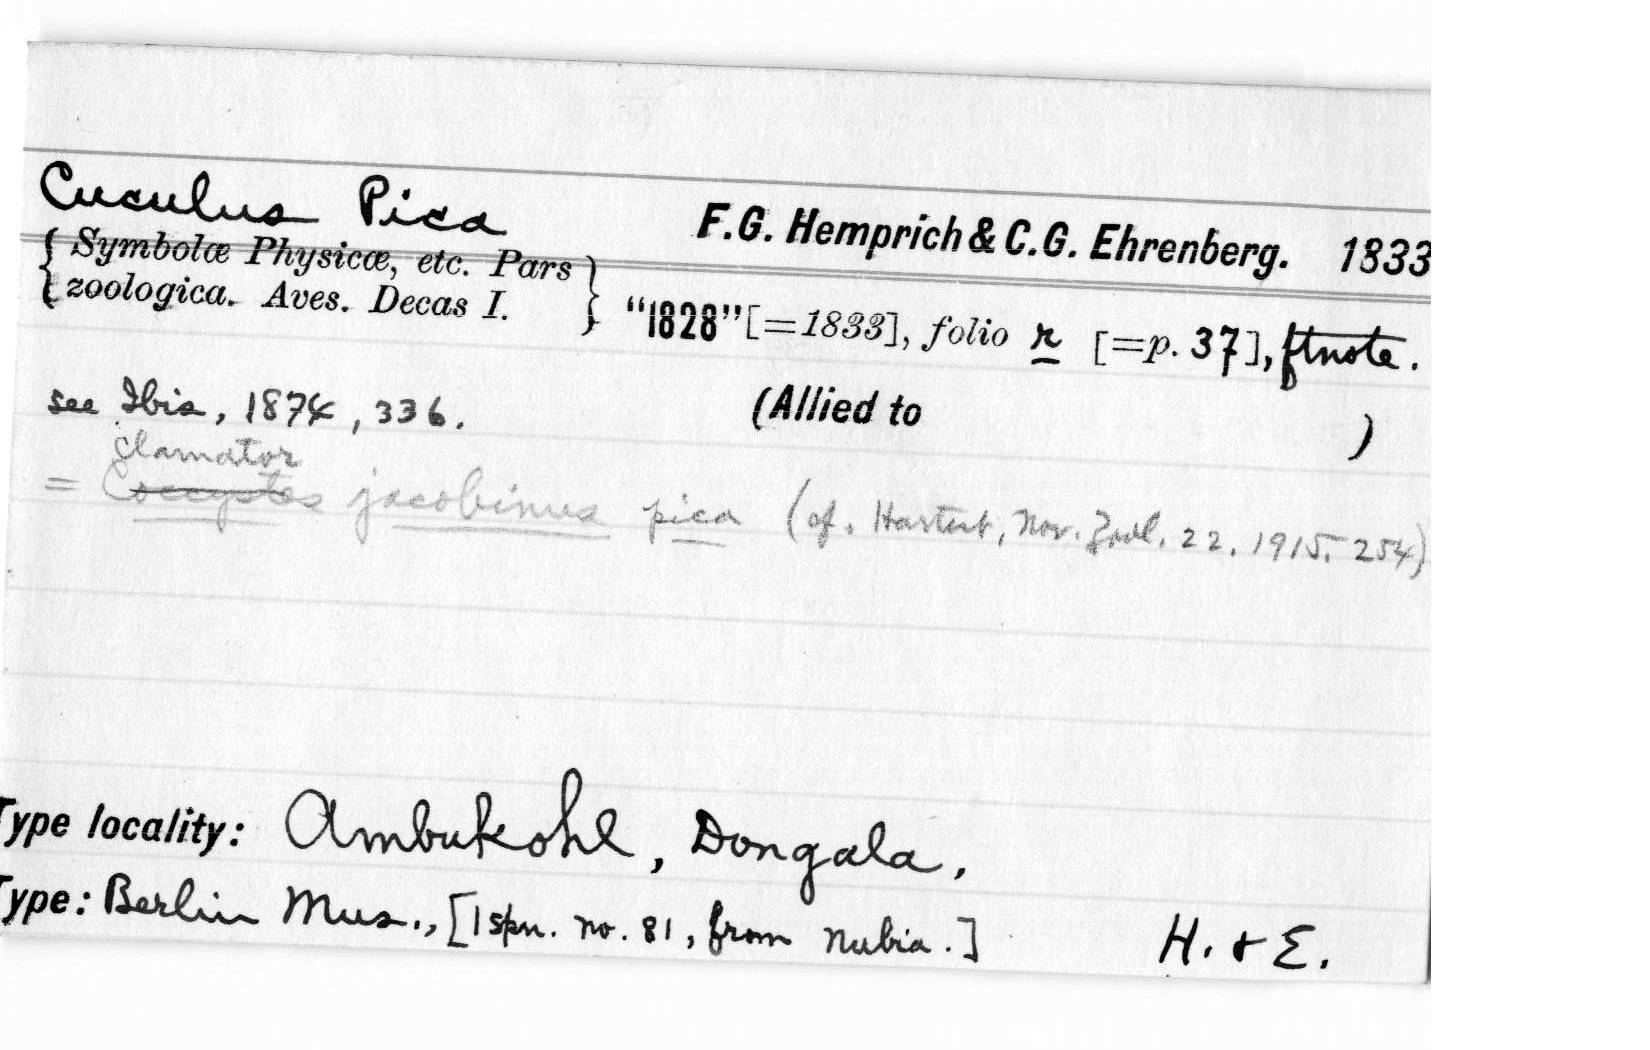 Cuculus Pica F.G. Hemprich & C.G. Ehrenberg. 1833
{ Symbolæ Physicæ, etc. Pars
zoologica. Aves. Decas I. } "1828" [=1833], folio r [=p. 37], ftnote.
see Ibis, 1874, 336. (Allied to )
clamator
= Coccystes jacobinus pica (cf. Hartert, Nov. Zool. 22, 1915, 254)
Type locality: Ambukohl, Dongala,
Type: Berlin Mus., [1 spn. no. 81, from Nubia.] H. & E.